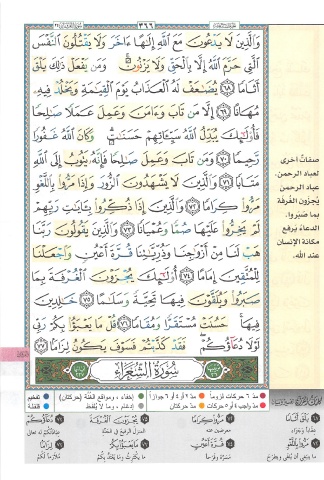 ٣٦٦
وَالَّذِينَ لَا يَدْعُونَ مَعَ اللَّهِ إِلَٰهًا ءَاخَرَ وَلَا يَقْتُلُونَ النَّفْسَ
الَّتِي حَرَّمَ اللَّهُ إِلَّا بِالْحَقِّ وَلَا يَزْنُونَ ۚ وَمَن يَفْعَلْ ذَٰلِكَ يَلْقَ
أَثَامًا ٦٨ يُضَاعَفْ لَهُ الْعَذَابُ يَوْمَ الْقِيَامَةِ وَيَخْلُدْ فِيهِ
مُهَانًا ٦٩ إِلَّا مَن تَابَ وَءَامَنَ وَعَمِلَ عَمَلًا صَالِحًا
فَأُولَٰئِكَ يُبَدِّلُ اللَّهُ سَيِّئَاتِهِمْ حَسَنَاتٍ ۗ وَكَانَ اللَّهُ غَفُورًا
رَّحِيمًا ٧٠ وَمَن تَابَ وَعَمِلَ صَالِحًا فَإِنَّهُ يَتُوبُ إِلَى اللَّهِ
مَتَابًا ٧١ وَالَّذِينَ لَا يَشْهَدُونَ الزُّورَ وَإِذَا مَرُّوا بِاللَّغْوِ
مَرُّوا كِرَامًا ٧٢ وَالَّذِينَ إِذَا ذُكِّرُوا بِآيَاتِ رَبِّهِمْ
لَمْ يَخِرُّوا عَلَيْهَا صُمًّا وَعُمْيَانًا ٧٣ وَالَّذِينَ يَقُولُونَ رَبَّنَا
هَبْ لَنَا مِنْ أَزْوَاجِنَا وَذُرِّيَّاتِنَا قُرَّةَ أَعْيُنٍ وَاجْعَلْنَا
لِلْمُتَّقِينَ إِمَامًا ٧٤ أُولَٰئِكَ يُجْزَوْنَ الْغُرْفَةَ بِمَا
صَبَرُوا وَيُلَقَّوْنَ فِيهَا تَحِيَّةً وَسَلَامًا ٧٥ خَالِدِينَ
فِيهَا ۚ حَسُنَتْ مُسْتَقَرًّا وَمُقَامًا ٧٦ قُلْ مَا يَعْبَأُ بِكُمْ رَبِّي
لَوْلَا دُعَاؤُكُمْ ۖ فَقَدْ كَذَّبْتُمْ فَسَوْفَ يَكُونُ لِزَامًا ٧٧
سُورَةُ الشُّعَرَاءِ
صفات أخرى
لعباد الرحمن.
عباد الرحمن
يُجزون الغرفة
بما صبروا.
الدعاء يرفع
مكانة الإنسان
عند الله.
مدّ ٦ حركات لزوماً
مدّ ٢ أو ٤ أو ٦ جوازاً
إخفاء، ومواقع الغنّة (حركتان)
تفخيم
مدّ واجب ٤ أو ٥ حركات
مدّ حركتان
إدغام، وما لا يُلفظ
قلقلة